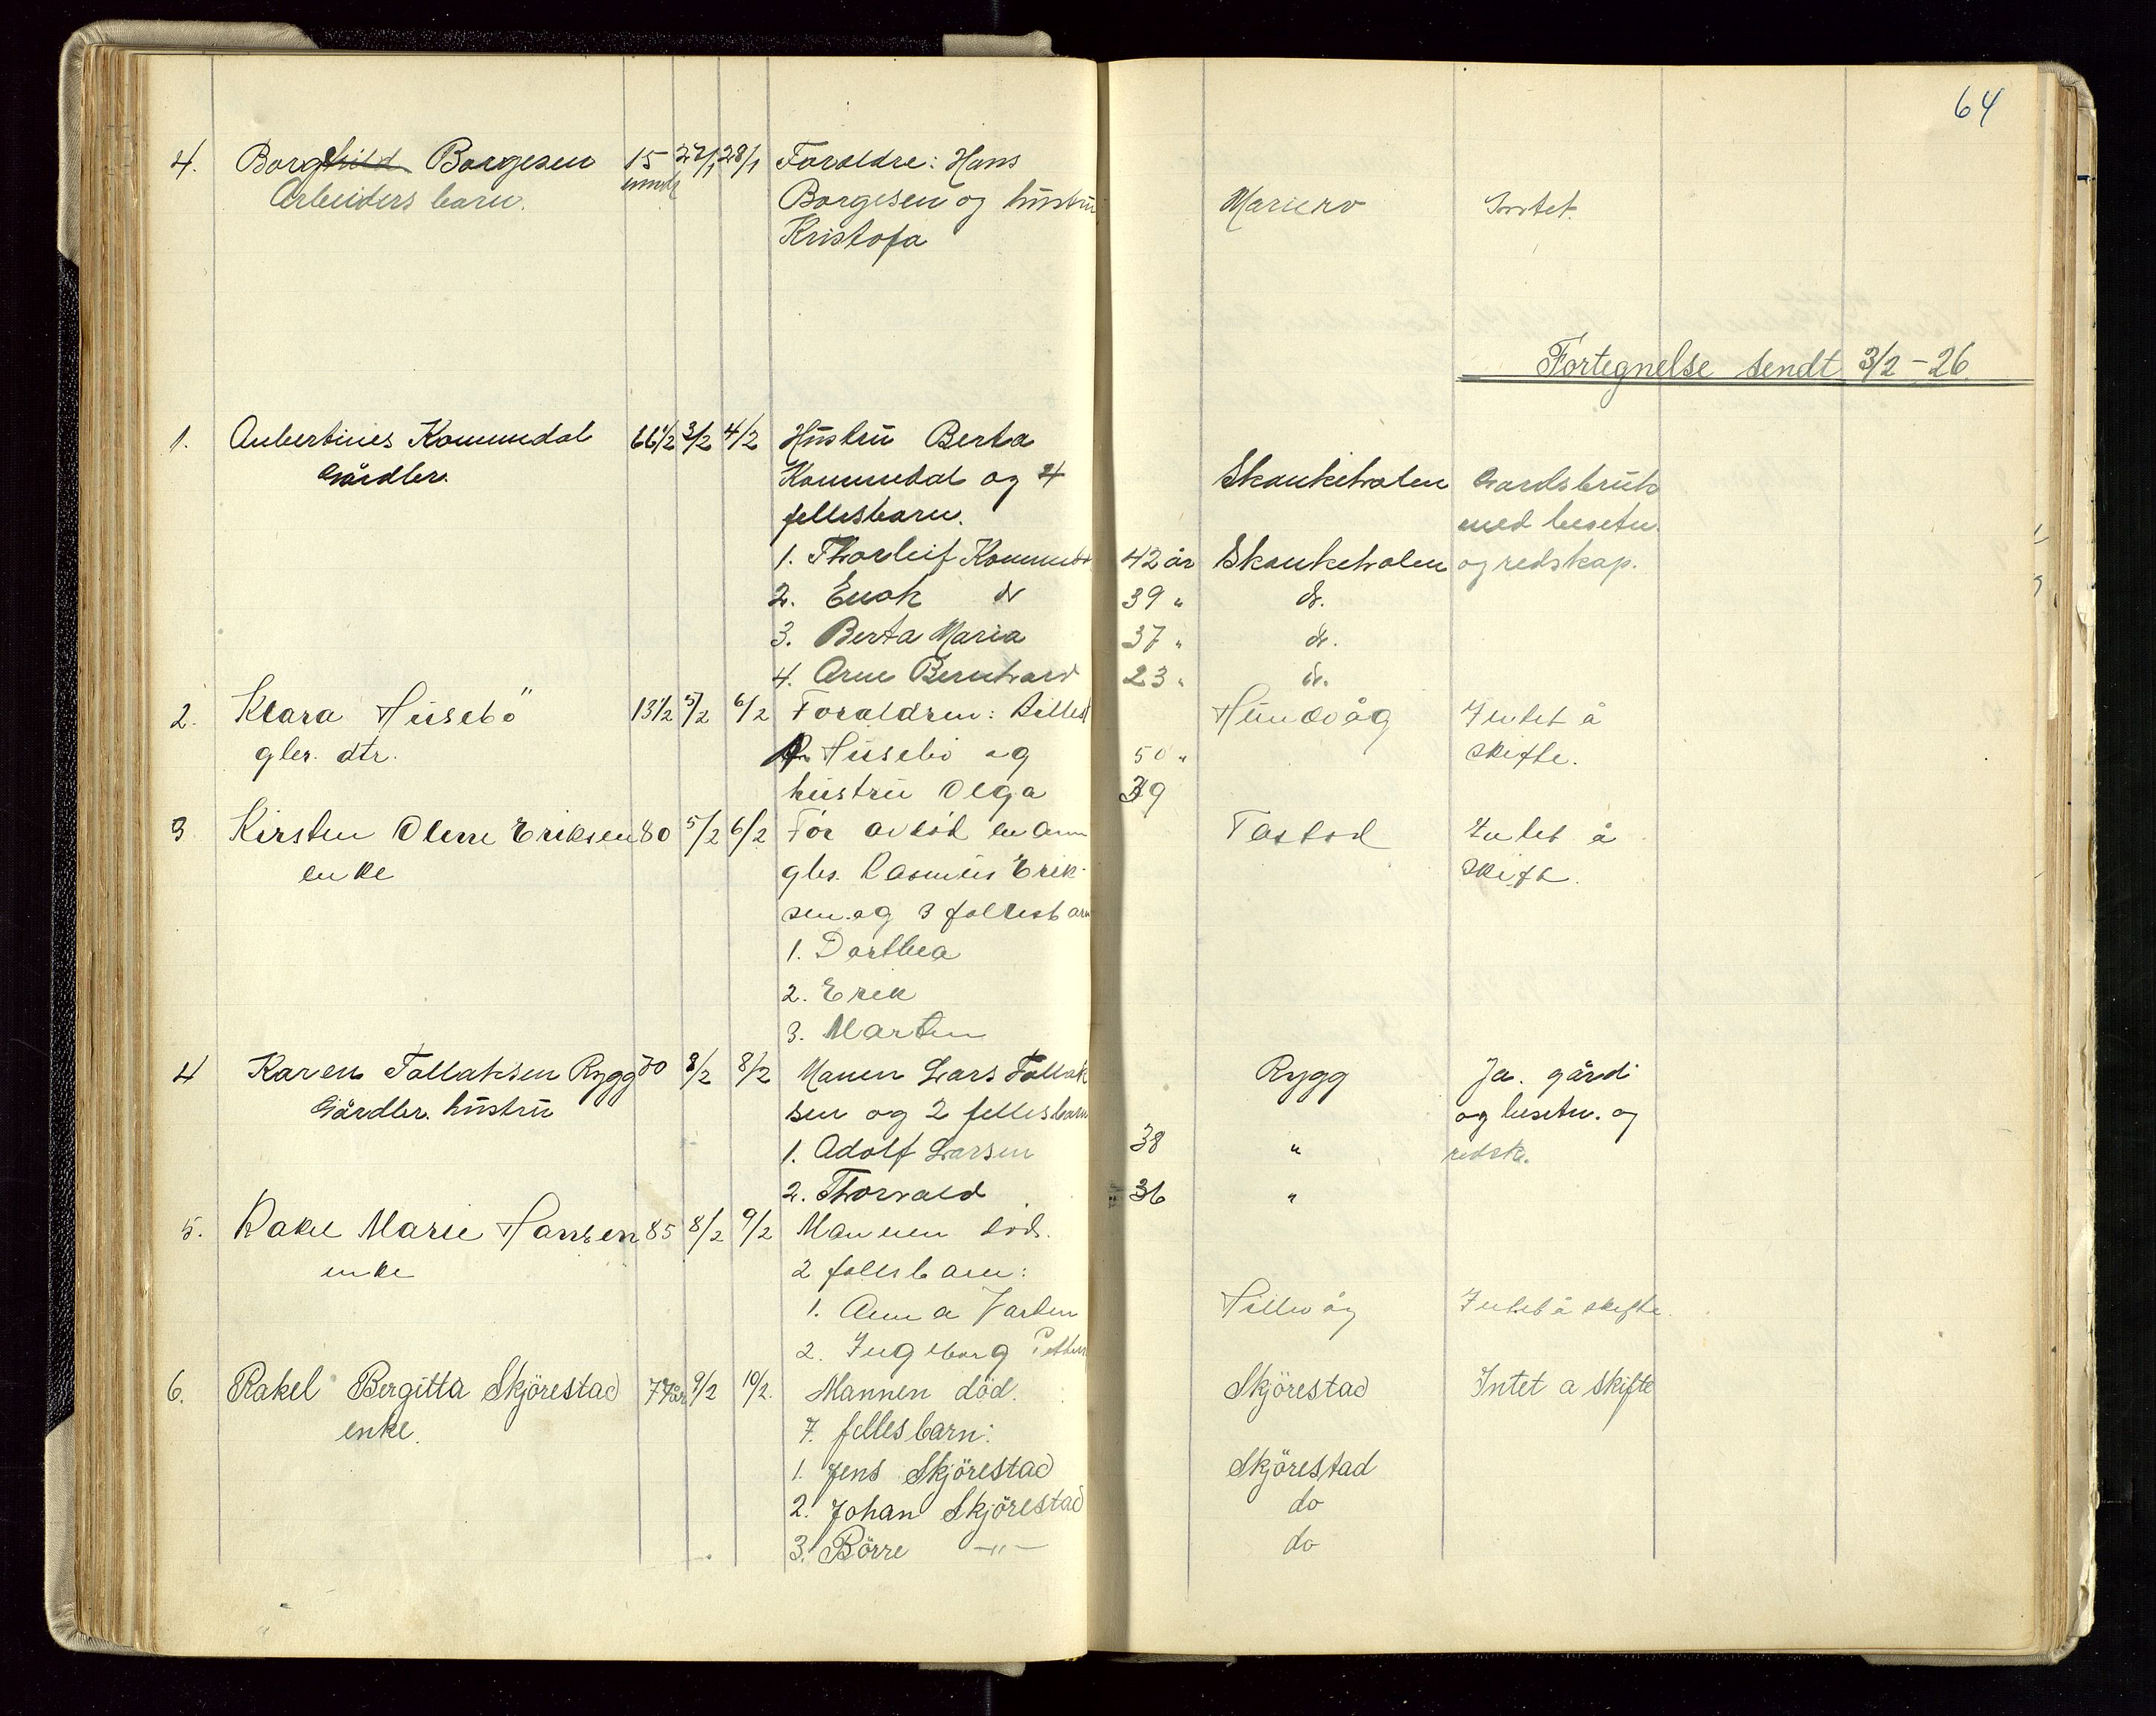 64
4. Borghild Borgesen 15 27/1 28/1 Foroldre: Hans
Arbeiders barn. mndr Borgesen og hustru Mariero Intet.
Kristofa
Fortegnelse sendt 3/2-26
1. Aubertines Kommedal 66 1/2 3/2 4/2 Hustru Berta
Gårdbr. Kommedal og 4 Skankeholen Gardsbruk
fellesbarn. med besetn.
1. Thorleif Kommedal 42 år Skankeholen og redskap.
2. Enok do 39 " do.
3. Berta Maria 37 " do.
4. Arne Bernhard 23 " do.
2. Klara Husebö 13 1/2 5/2 6/2 Foraldren: Hundvåg Intet å
gbr. dtr. Husebö og 50 " skifte.
hustru Olga 39
3 Kirsten Olene Eriksen 80 5/2 6/2 Før avdöd Tastad Intet å
enke gbr. Rasmus Erik- skifte.
sen og 3 fellesbarn
1. Dorthea
2. Erik
3. Marten
4 Karen Tollaksen Rygg 70 8/2 8/2 Manen Lars Tollak Rygg Ja. gård
Gårdbr. hustru sen og 2 fellesbarn og besetn. og
1. Adolf Larsen 38 " redsk.
2. Thorvald 36 "
5. Rakel Marie Hansen 85 8/2 9/2 Mannen död.
enke 2 fellesbarn:
1. Anna Hillevåg Intet å skifte.
2. Ingeborg
6. Rakel Bergitta Skjörestad 77 år 9/2 10/2. Mannen död. Skjörestad Intet a skifte
enke. 7 fellesbarn:
1. Jens Skjörestad Skjörestad
2. Johan Skjörestad do
3. Börre —"— do